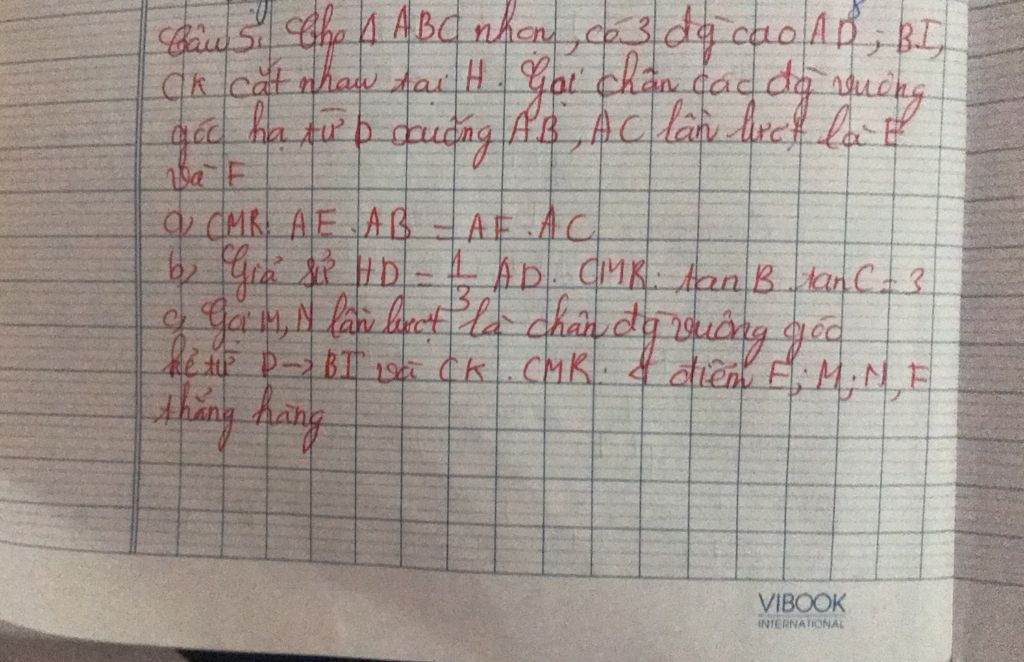 Câu 5: Cho Δ ABC nhọn, có 3 đg cao AD; BI,
CK cắt nhau tại H. Gọi chân các đg vuông
góc hạ từ D xuống AB, AC lần lượt là E
và F
a, CMR: AE.AB = AF.AC
b, Giả sử HD = 1/3 AD. CMR: tan B.tan C = 3
c, Gọi M, N lần lượt là chân đg vuông góc
kẻ từ D → BI và CK. CMR: 4 điểm E; M; N, F
thẳng hàng
VIBOOK
INTERNATIONAL